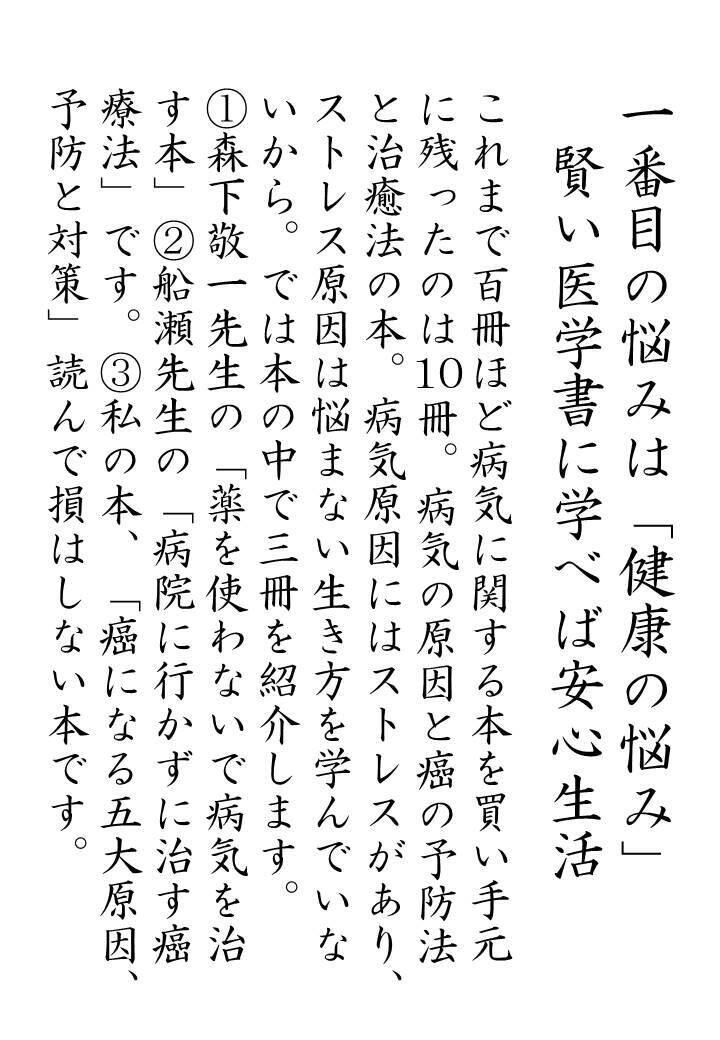 一番目の悩みは「健康の悩み」
賢い医学書に学べば安心生活
これまで百冊ほど病気に関する本を買い手元
に残ったのは10冊。病気の原因と癌の予防法
と治癒法の本。病気原因にはストレスがあり、
ストレス原因は悩まない生き方を学んでいな
いから。では本の中で三冊を紹介します。
①森下敬一先生の「薬を使わないで病気を治
す本」②船瀬先生の「病院に行かずに治す癌
療法」です。③私の本、「癌になる五大原因、
予防と対策」読んで損はしない本です。